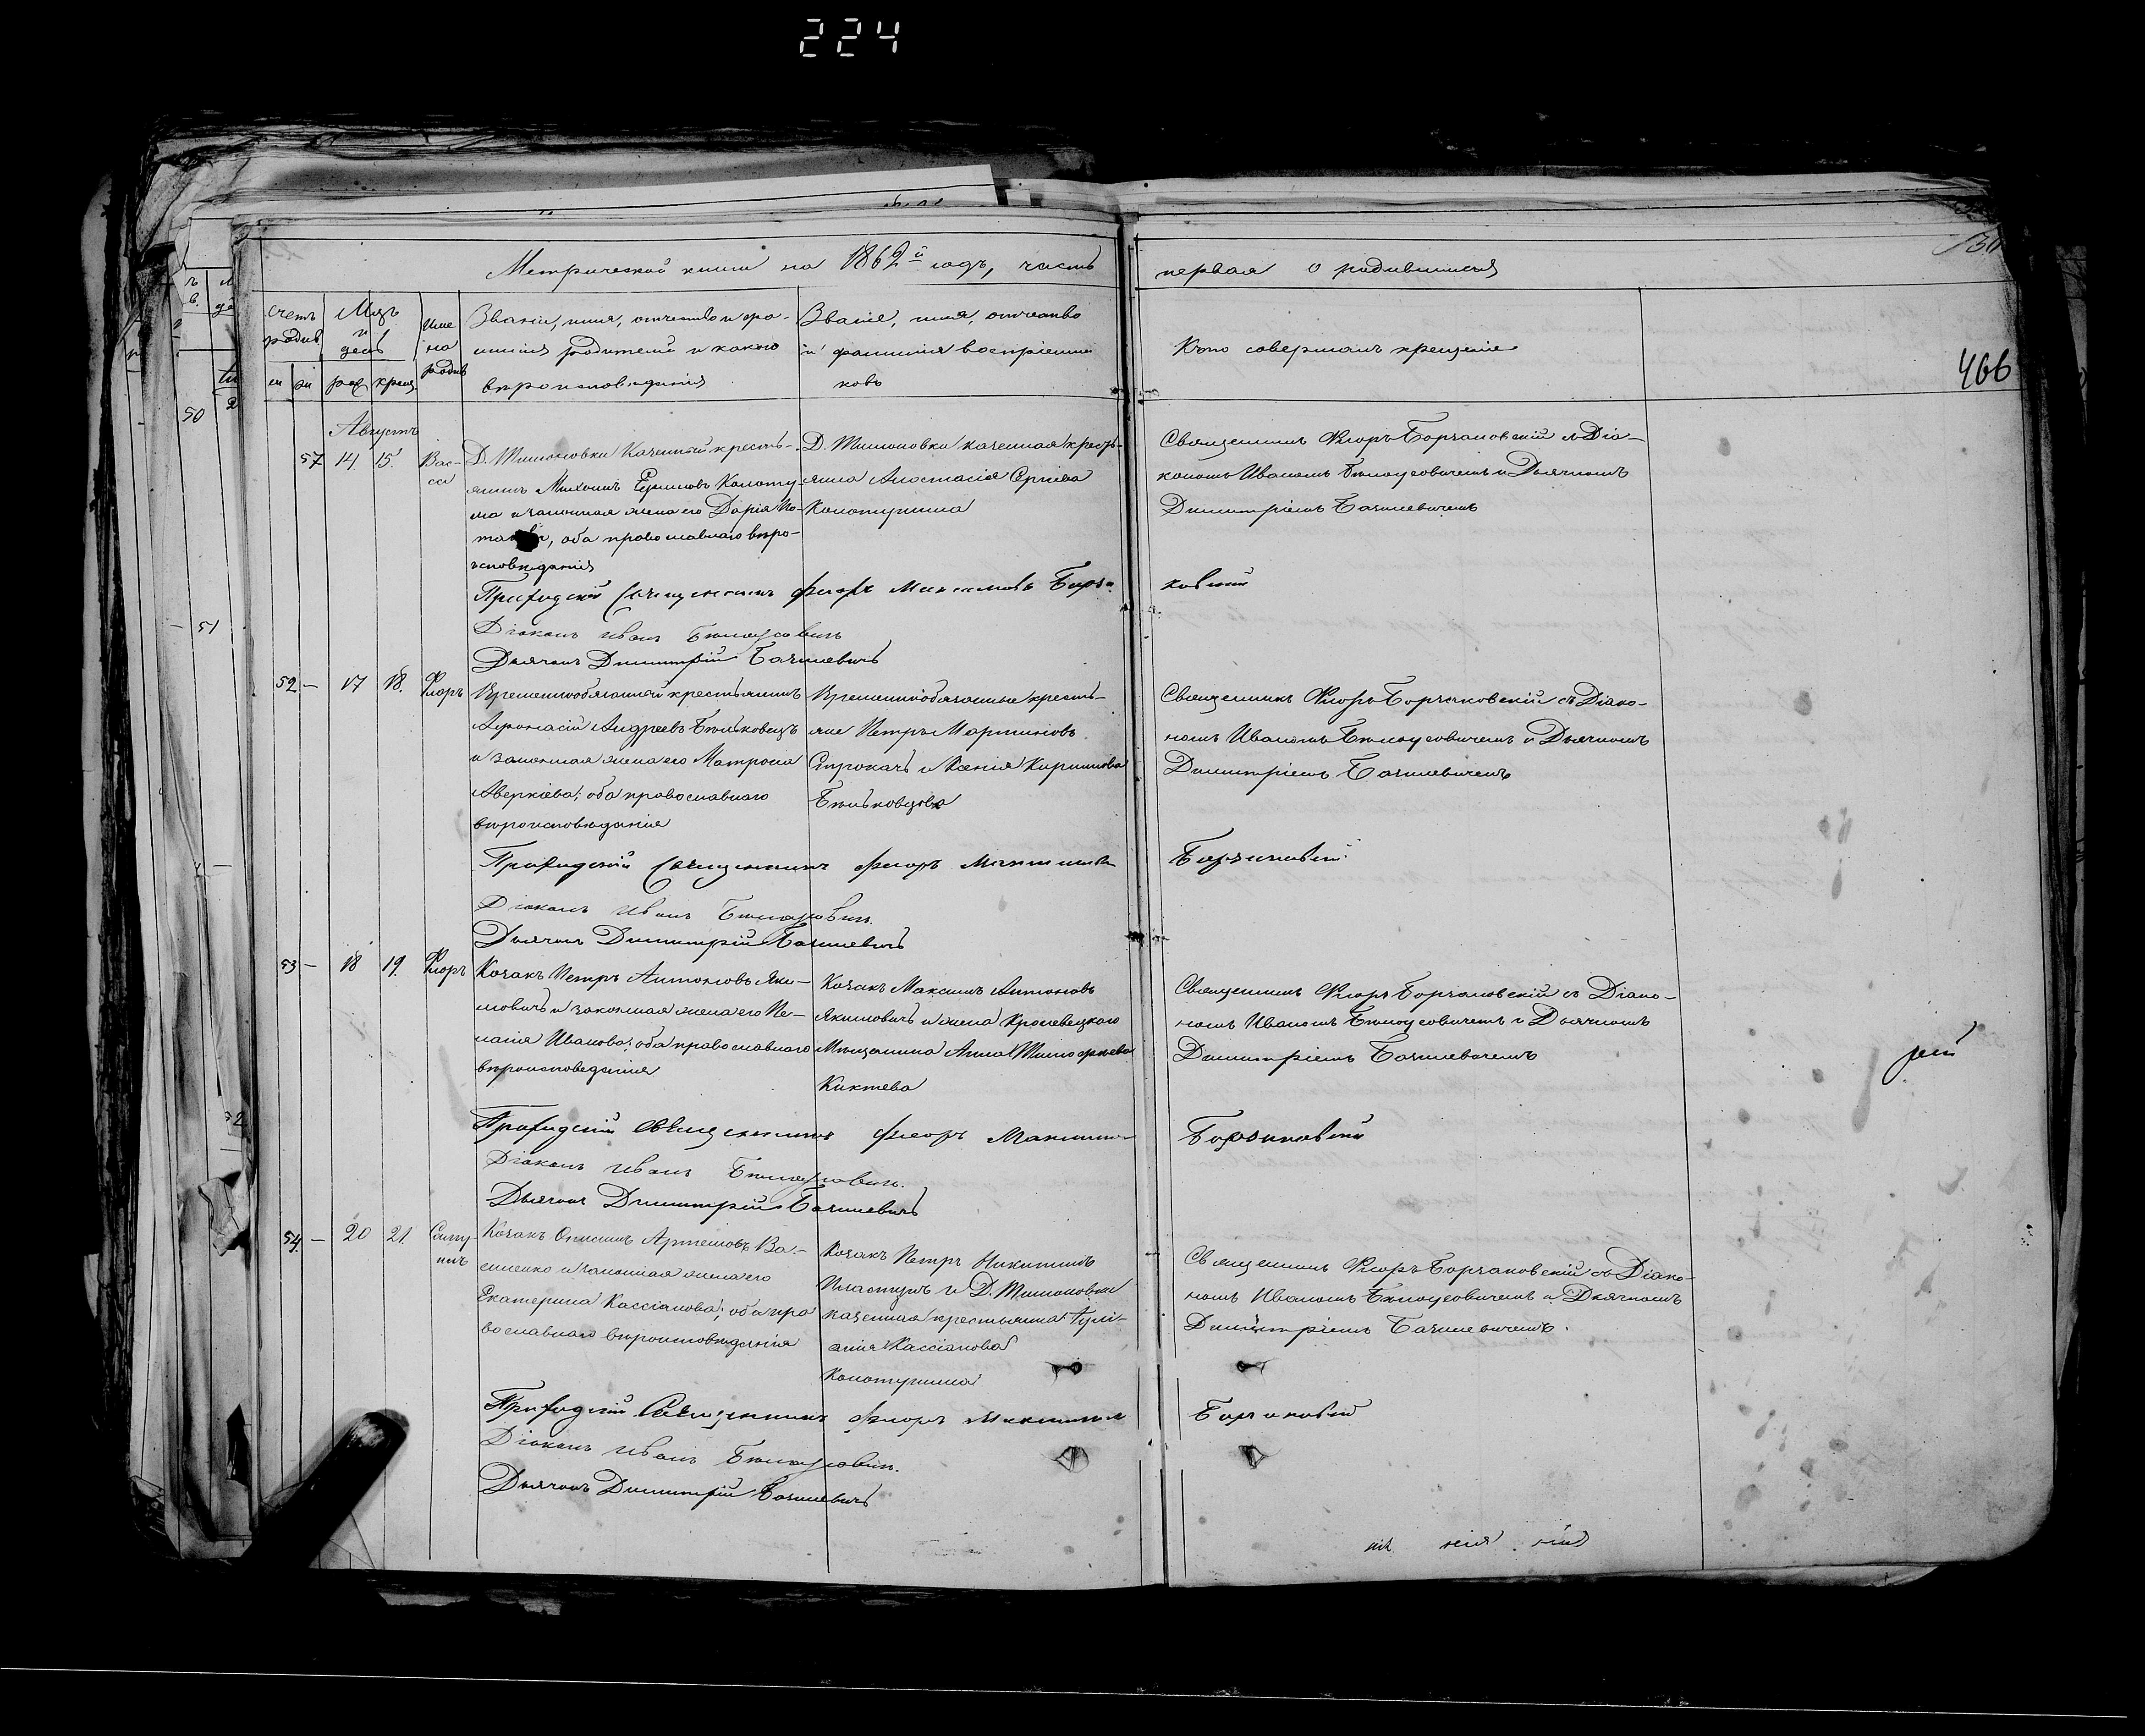 224
Метрической книги на 1862й годъ, часть
первая о родившихся
466
Счетъ родив
Мцъ и день
Име на родив
Званіе, имя, отчество и фа-
милія родителей и какого
вѣроисповѣданія
Званіе, имя, отчество
и фамилія воспріемни
ковъ
Кто совершалъ крещеніе
м
ж
рож
крещ
50
51
52
Августъ
57 14 15.
Вас-
са
Д. Тимоновки Казенный кресть-
янинъ Михаилъ Колоту
ша и законная жена его Дарія По-
, оба православнаго вѣро-
исповѣданія
Д. Тимоновки казенная кресть-
янка Анастасія Сергіева
Колотушина
Священникъ Флоръ Борзаковскій съ Діа-
кономъ Иваномъ Бѣлоусовичемъ и Дьячкомъ
Димитріемъ Базилевичемъ
Приходскій Священникъ Флоръ Максимовъ Борза
ковскій
Діаконъ Иванъ Бѣлоусовичъ
Дьячокъ Димитрій Базилевичъ
52 — 17 18.
Флоръ
Временнообязанный крестьянинъ
Афонасій Андреевъ Бѣльковецъ
и законная жена его Матрона
Аверкіева; оба православнаго
вѣроисповѣданія
Временнообязанные кресть-
яне Петръ Мартиновъ
Строкачъ и Ксенія Кирилова
Бѣльковцова
Священникъ Флоръ Борзаковскій съ Діако-
номъ Иваномъ Бѣлоусовичемъ и Дьячкомъ
Димитріемъ Базилевичемъ
Приходскій Священникъ Флоръ Максимовъ
Борзаковскій
Діаконъ Иванъ Бѣлоусовичъ
Дьячокъ Димитрій Базилевичъ
53 — 18 19.
Флоръ
Козакъ Петръ Антоновъ Яки-
мовичъ и законная жена его Пе-
лагія Иванова; оба православнаго
вѣроисповеданія
Козакъ Максимъ Антоновъ
Якимовичъ и жена Кролевецкаго
Мѣщанина Анна Тимофѣева
Киктева
Священникъ Флоръ Борзаковскій съ Діако-
номъ Иваномъ Бѣлоусовичемъ и Дьячкомъ
Димитріемъ Базилевичемъ
рей
Приходскій Священникъ Флоръ Максимовъ
Борзаковскій
Діаконъ Иванъ Бѣлоусовичъ.
Дьячокъ Димитрій Базилевичъ
54. — 20 21.
Саму
илъ
Козакъ Онисимъ Артемовъ Ва-
силенко и законная жена его
Екатерина Кассіанова; оба пра
вославнаго вѣроисповѣданія
Козакъ Петръ Никитинъ
Пластунъ и Д. Тимоновки
казенная крестьянка Іулі-
анія Кассіанова
Колотушина
Священникъ Флоръ Борзаковскій съ Діако-
номъ Иваномъ Бѣлоусовичемъ и Дьячкомъ
Димитріемъ Базилевичемъ.
Приходскій Священникъ Флоръ Максимовъ
Борзаковскій
Діаконъ Иванъ Бѣлоусовичъ.
Дьячокъ Димитрій Базилевичъ